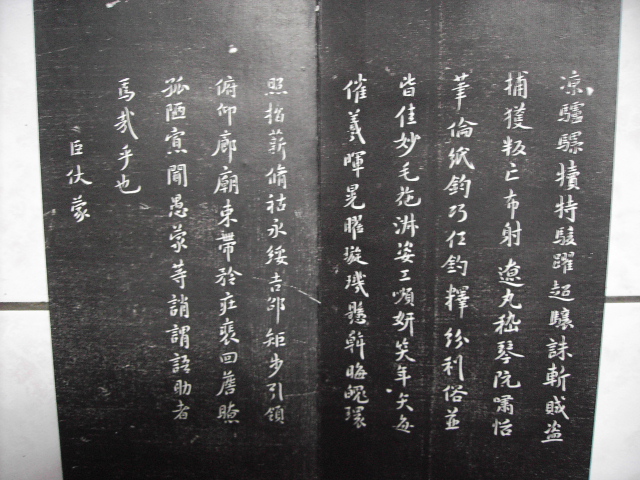 凉驢騾犢特駭躍超驤誅斬賊盗
捕獲叛亡布射遼丸嵇琴阮嘯恬
筆倫紙鈞巧任釣釋紛利俗並
皆佳妙毛施淑姿工顰妍笑年矢每
催羲暉晃曜璇璣懸斡晦魄環
照指薪脩祜永綏吉邵矩步引領
俯仰廊廟束帶矜莊裵回瞻眺
孤陋寡聞愚蒙等誚謂語助者
焉哉乎也
臣伏蒙